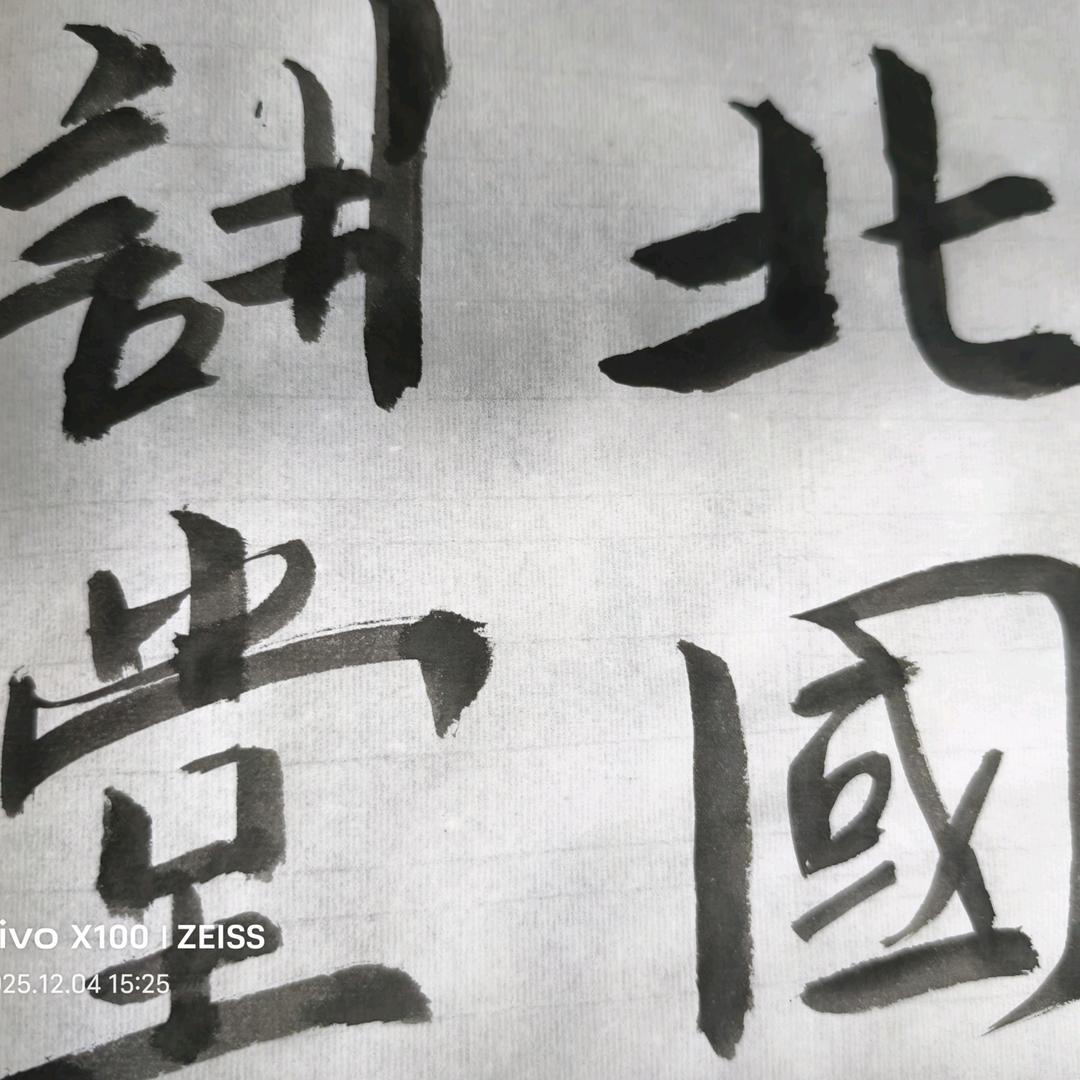 北國
講堂
ivo X100 | ZEISS
025.12.04 15:25